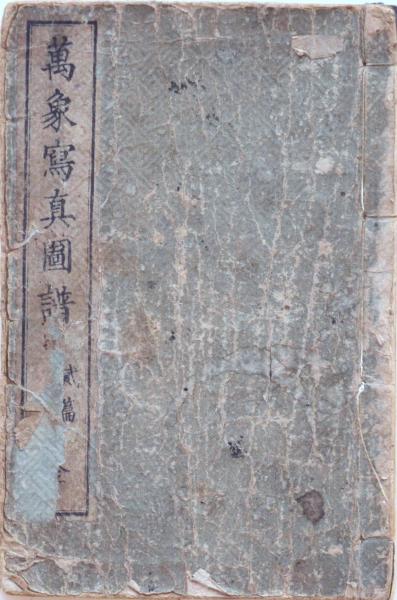 萬象寫真圖譜
貳篇 全